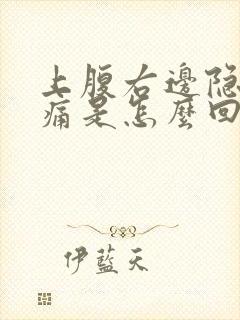 上腹右邊隐
痛是怎麼回
伊藍天